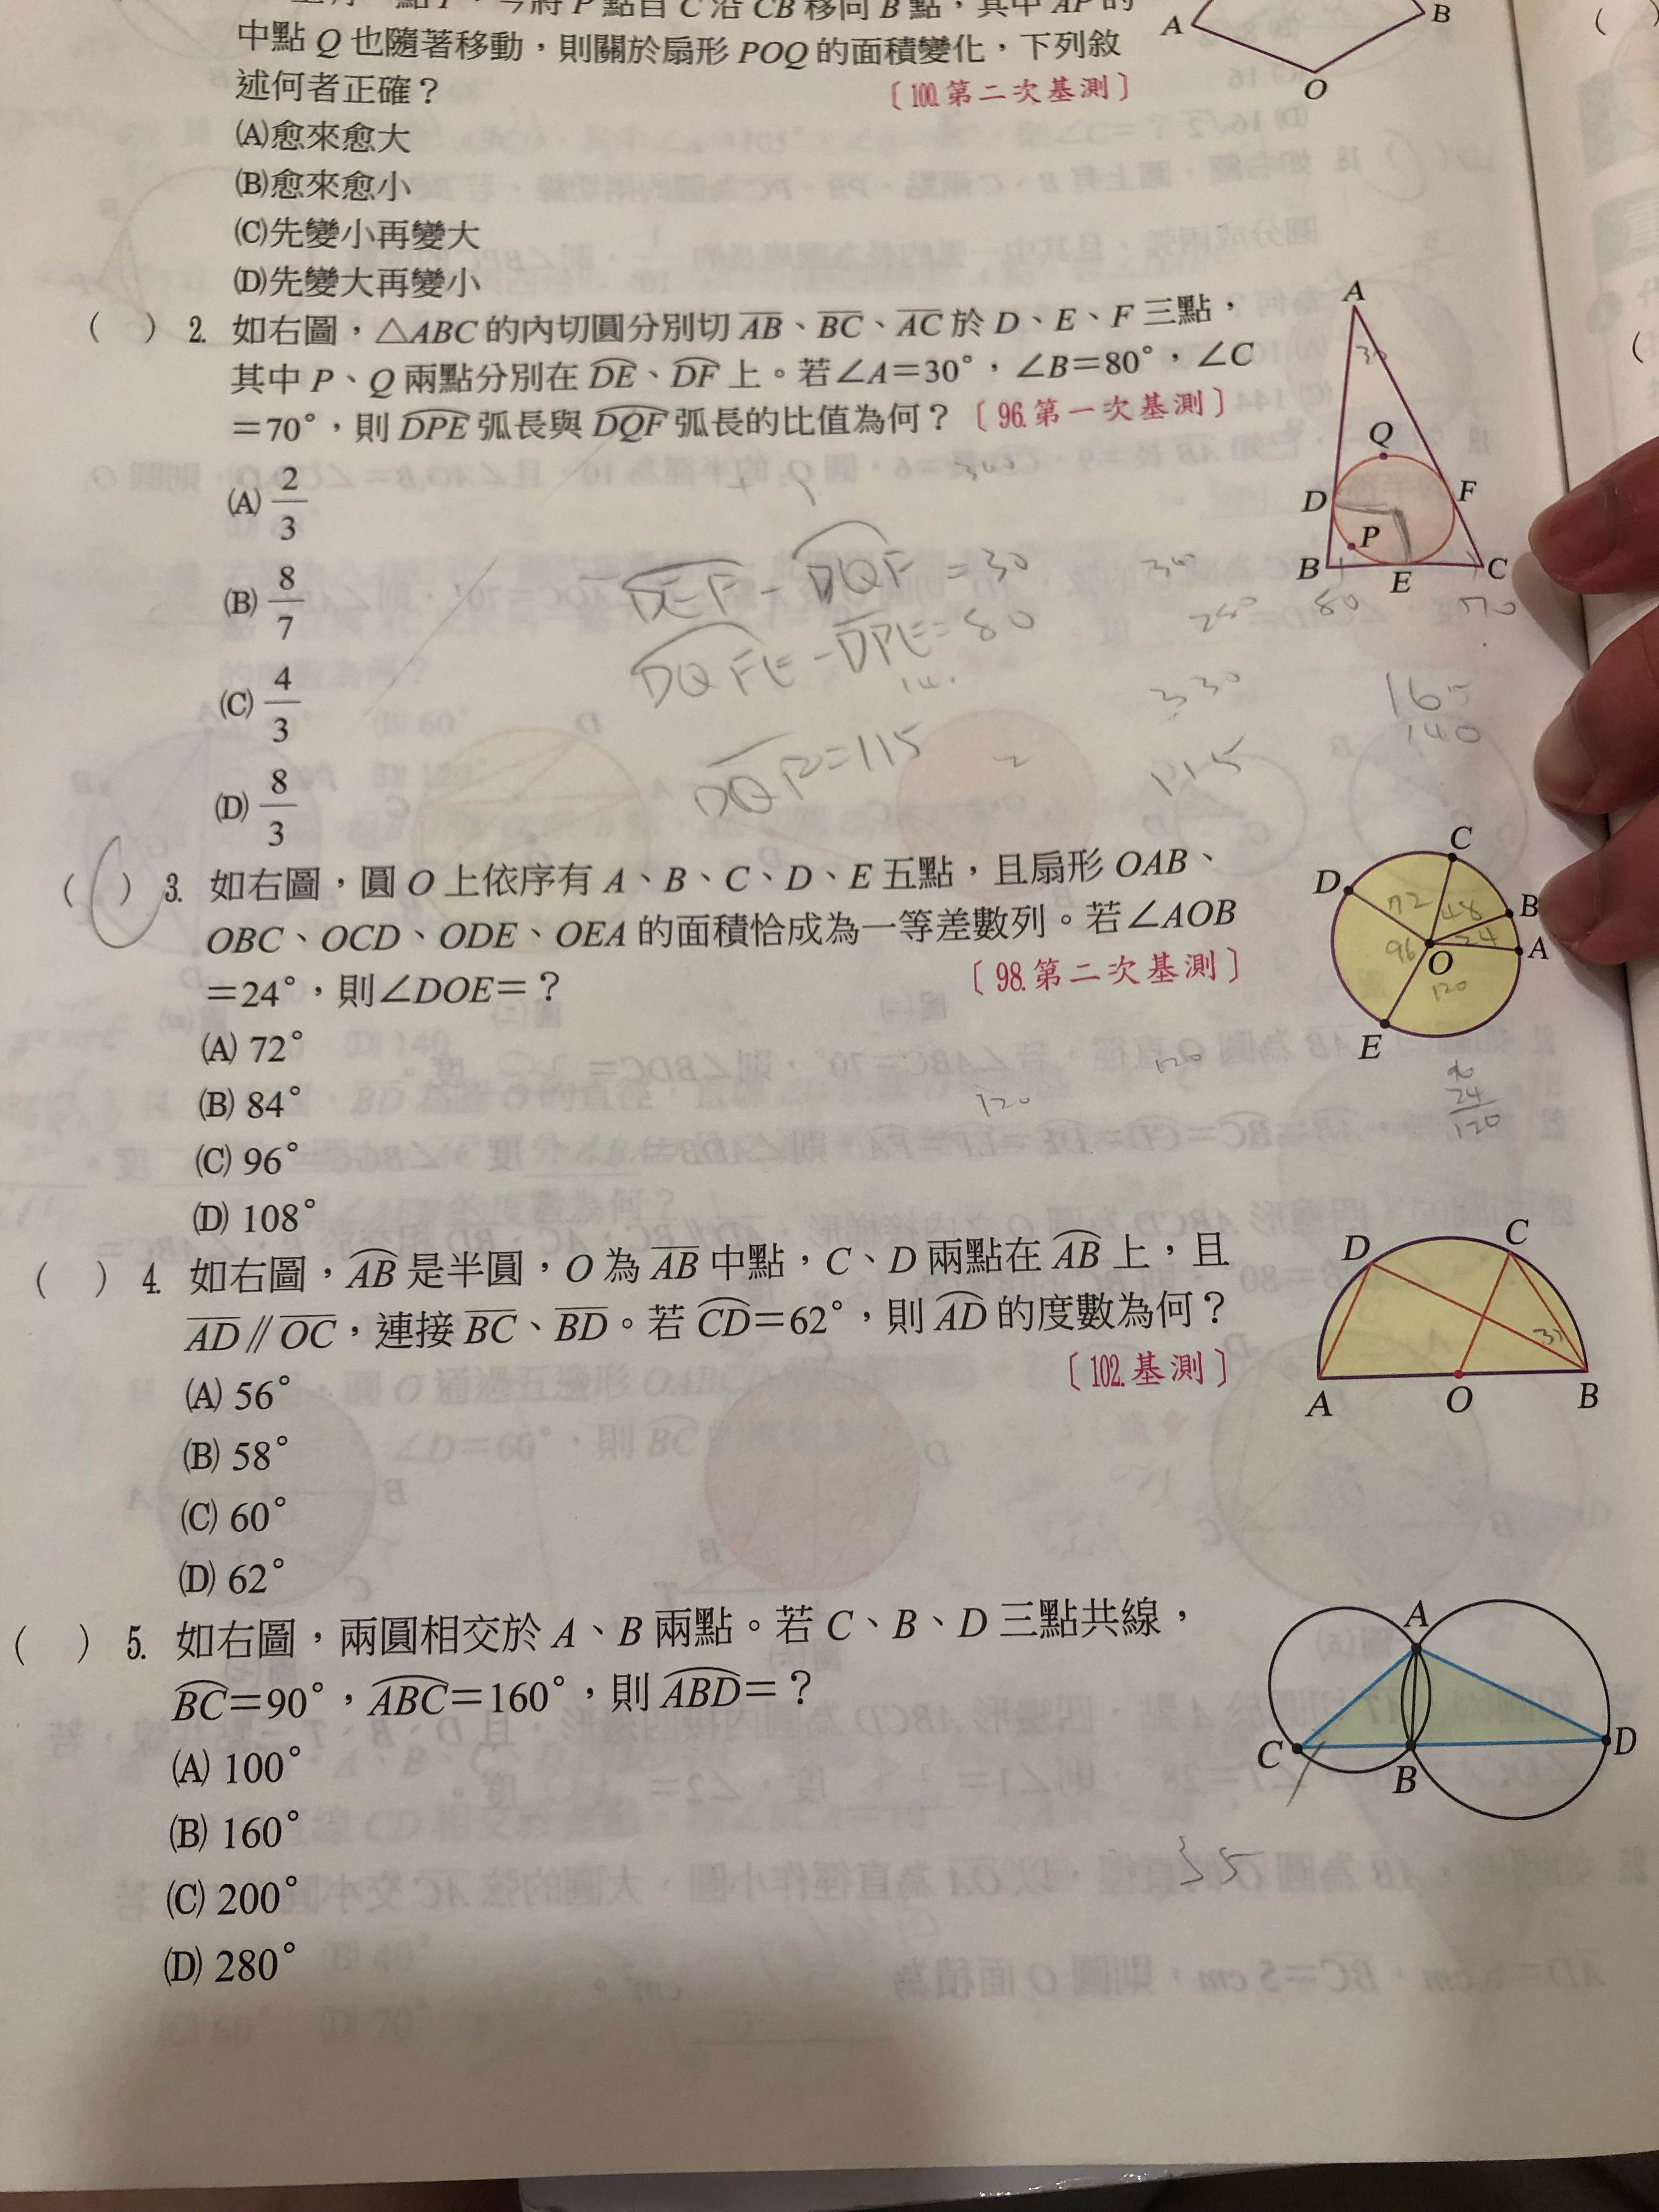 中點 Q 也隨著移動，則關於扇形 POQ 的面積變化，下列敘
述何者正確？〔100.第二次基測〕
(A)愈來愈大
(B)愈來愈小
(C)先變小再變大
(D)先變大再變小
A
B
O
(　) 2. 如右圖，△ABC 的內切圓分別切 A͞B͞、B͞C͞、A͞C͞ 於 D、E、F 三點，
其中 P、Q 兩點分別在 D͡E、D͡F 上。若∠A＝30°，∠B＝80°，∠C
＝70°，則 D͡PE 弧長與 D͡QF 弧長的比值為何？〔96.第一次基測〕
(A) 2/3
(B) 8/7
(C) 4/3
(D) 8/3
A
Q
D
F
P
B
E
C
80
70
DEF - DQF = 30
DQFE - DPE = 80
DQF = 115
330
115
165
140
(　) 3. 如右圖，圓 O 上依序有 A、B、C、D、E 五點，且扇形 OAB、
OBC、OCD、ODE、OEA 的面積恰成為一等差數列。若∠AOB
＝24°，則∠DOE＝？〔98.第二次基測〕
(A) 72°
(B) 84°
(C) 96°
(D) 108°
C
D
B
A
O
E
72
48
24
96
120
120
120
24
120
(　) 4. 如右圖，A͡B 是半圓，O 為 A͞B͞ 中點，C、D 兩點在 A͡B 上，且
A͞D͞ // O͞C͞，連接 B͞C͞、B͞D͞。若 C͡D＝62°，則 A͡D 的度數為何？
〔102.基測〕
(A) 56°
(B) 58°
(C) 60°
(D) 62°
D
C
A
O
B
(　) 5. 如右圖，兩圓相交於 A、B 兩點。若 C、B、D 三點共線，
B͡C＝90°，A͡BC＝160°，則 A͡BD＝？
(A) 100°
(B) 160°
(C) 200°
(D) 280°
A
C
B
D
35